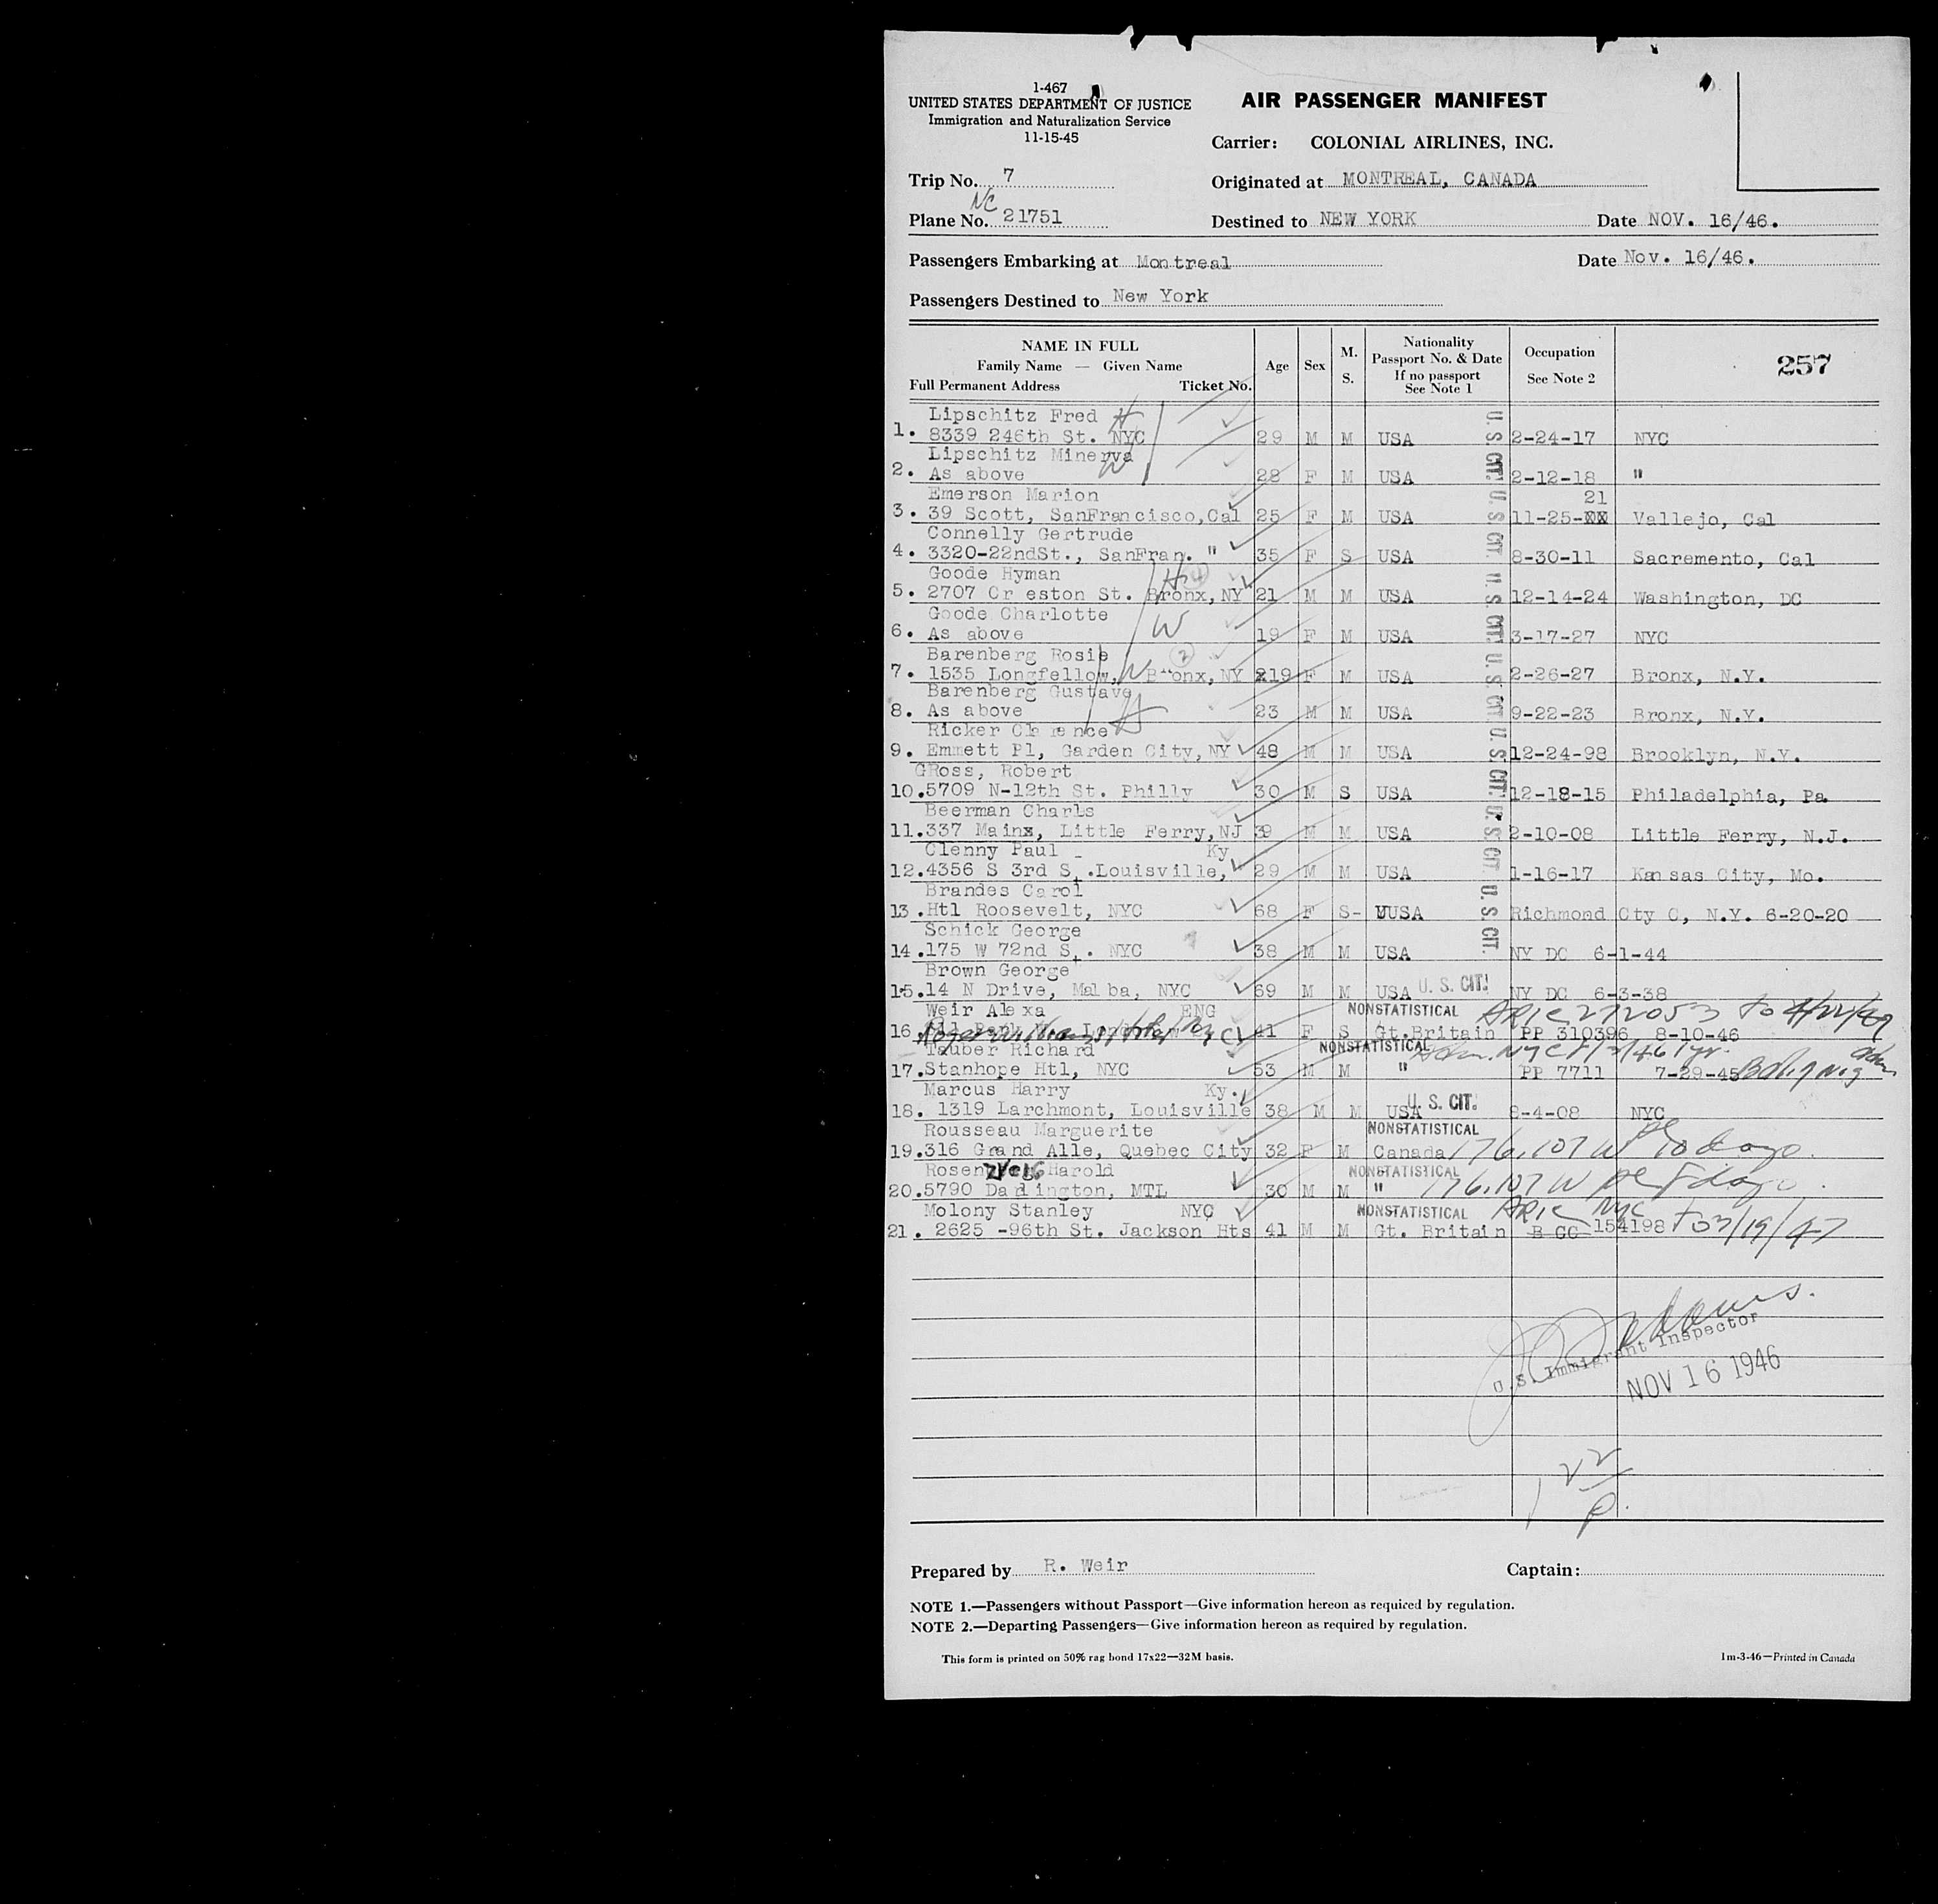 1-467
UNITED STATES DEPARTMENT OF JUSTICE
Immigration and Naturalization Service
11-15-45
AIR PASSENGER MANIFEST
Carrier: COLONIAL AIRLINES, INC.
Trip No. 7
Originated at MONTREAL, CANADA
NC
Plane No. 21751
Destined to NEW YORK Date NOV. 16/46.
Passengers Embarking at Montreal Date Nov. 16/46.
Passengers Destined to New York
NAME IN FULL
Family Name — Given Name
Full Permanent Address Ticket No.
Age Sex M. S.
Nationality
Passport No. & Date
If no passport
See Note 1
Occupation
See Note 2
257
Lipschitz Fred H
1. 8339 246th St. NYC 29 M M USA U. S. CIT. 2-24-17 NYC
Lipschitz Minerva
2. As above W 28 F M USA 2-12-18 "
Emerson Marion 21
3. 39 Scott, SanFrancisco,Cal 25 F M USA U. S. CIT. 11-25-XX Vallejo, Cal
Connelly Gertrude
4. 3320-22ndSt., SanFran. " 35 F S USA 8-30-11 Sacremento, Cal
Goode Hyman H
5. 2707 Cr eston St. Bronx, NY 21 M M USA U. S. CIT. 12-14-24 Washington, DC
Goode Charlotte
6. As above W 19 F M USA 3-17-27 NYC
Barenberg Rosie 2
7. 1535 Longfellow, W Bronx, NY x19 F M USA U. S. CIT. 2-26-27 Bronx, N.Y.
Barenberg Gustave
8. As above H 23 M M USA 9-22-23 Bronx, N.Y.
Ricker Clarence
9. Emmett Pl, Garden City, NY 48 M M USA U. S. CIT. 12-24-98 Brooklyn, N.Y.
GRoss, Robert
10. 5709 N-12th St. Philly 30 M S USA 12-18-15 Philadelphia, Pa
Beerman Charls
11. 337 Mainx, Little Ferry, NJ 39 M M USA U. S. CIT. 2-10-08 Little Ferry, N.J.
Clenny Paul Ky
12. 4356 S 3rd St. Louisville, 29 M M USA 1-16-17 Kansas City, Mo.
Brandes Carol
13. Htl Roosevelt, NYC 68 F S- USA U. S. CIT. Richmond Cty C, N.Y. 6-20-20
Schick George
14. 175 W 72nd St. NYC 38 M M USA NY DC 6-1-44
Brown George
15. 14 N Drive, Malba, NYC 69 M M USA U. S. CIT. NY DC 6-3-38
Weir Alexa ENG NONSTATISTICAL
16. 41 F S Gt.Britain PP 310396 8-10-46
Tauber Richard NONSTATISTICAL
17. Stanhope Htl, NYC 53 M M " PP 7711 7-29-45
Marcus Harry Ky.
18. 1319 Larchmont, Louisville 38 M M USA U. S. CIT. 8-4-08 NYC
Rousseau Marguerite NONSTATISTICAL
19. 316 Grand Alle, Quebec City 32 F M Canada 176.107 W 10 days.
Rosenzveig Harold NONSTATISTICAL
20. 5790 Darlington, MTL 30 M M " 176.107 W
Molony Stanley NYC NONSTATISTICAL NYC
21. 2625 -96th St. Jackson Hts 41 M M Gt. Britain B GC 154198 to 3/19/47
U.S. Immigrant Inspector
NOV 16 1946
22
Prepared by R. Weir Captain:
NOTE 1.—Passengers without Passport—Give information hereon as required by regulation.
NOTE 2.—Departing Passengers—Give information hereon as required by regulation.
This form is printed on 50% rag bond 17x22—32M basis. 1m-3-46—Printed in Canada